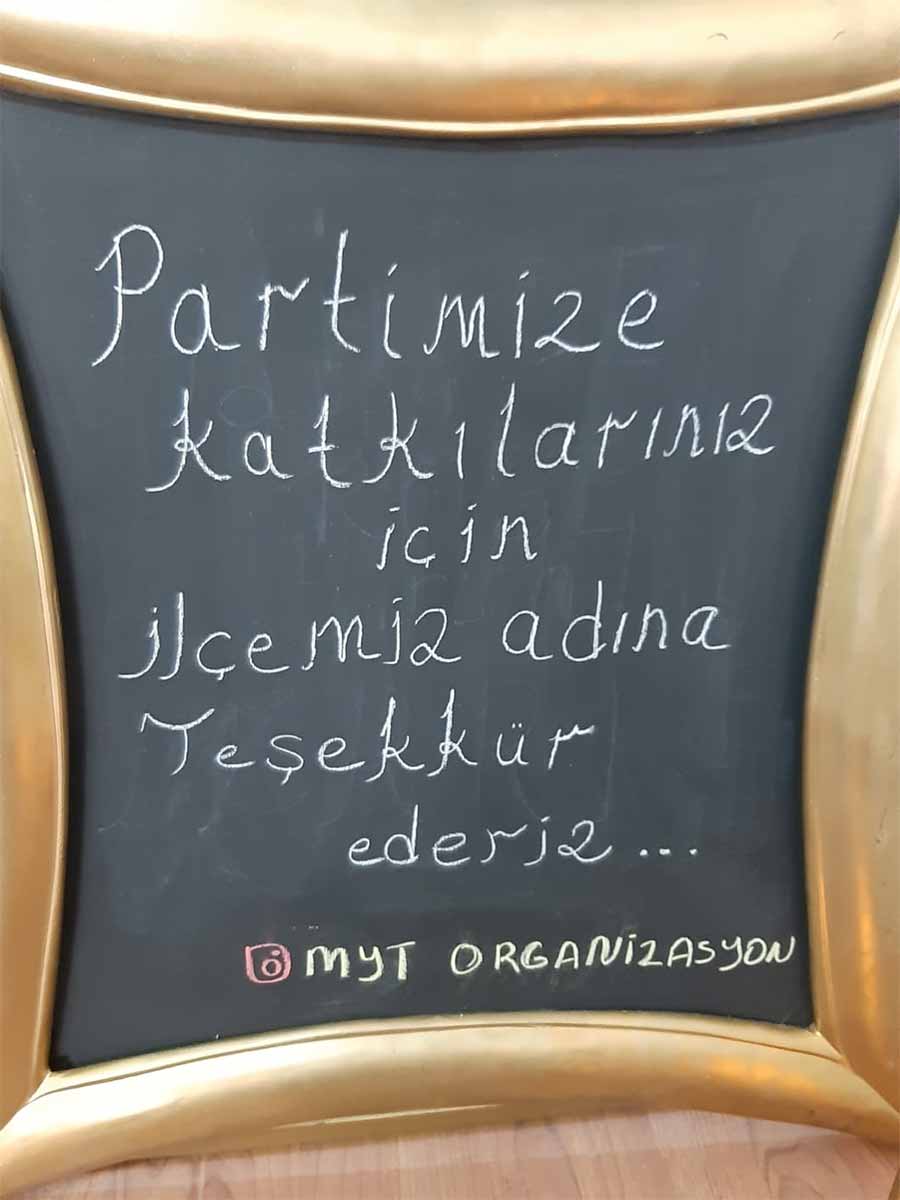 Partimize
katkılarınız
için
ilçemiz adına
Teşekkür
ederiz...
MYT ORGANİZASYON